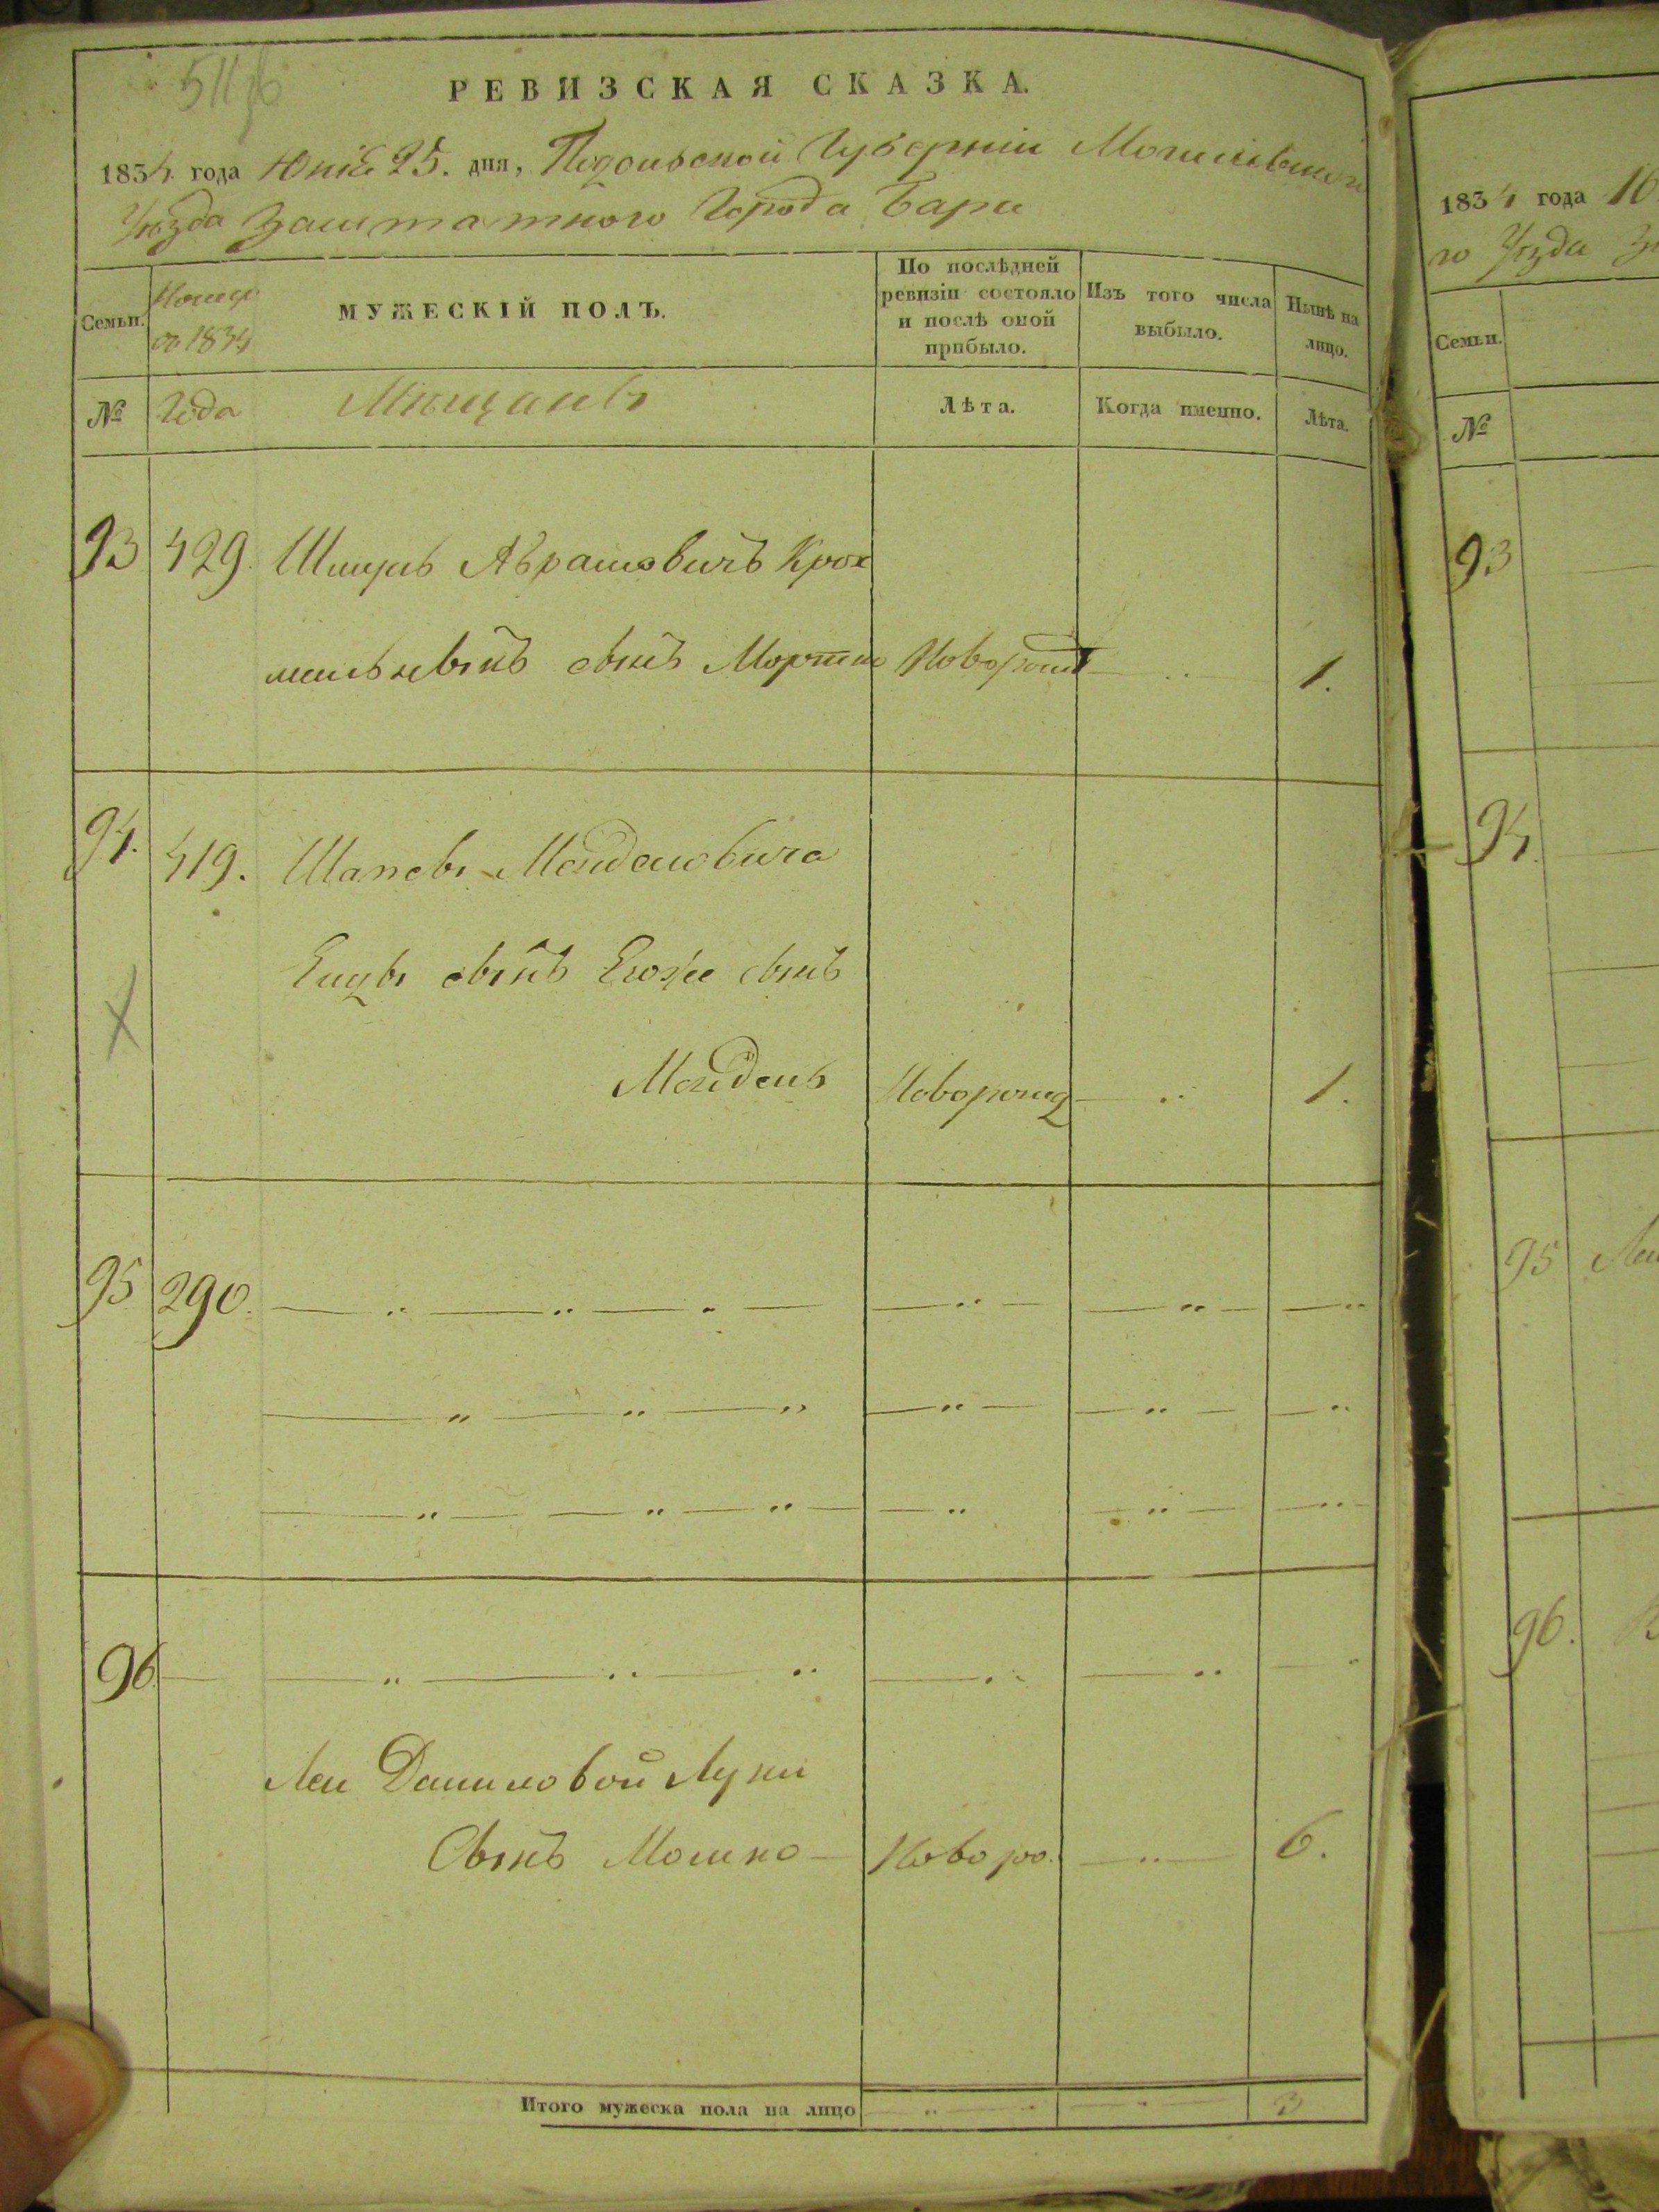 511
РЕВИЗСКАЯ СКАЗКА.
1834 года Юнiя 25. дня, Подольской Губернiи Могилевского
Уѣзда Заштатного Города Бара
Семьи.
Номер
по 1834
Года
МУЖЕСКІЙ ПОЛЪ.
По послѣдней
ревизіи состояло
и послѣ оной
прибыло.
Изъ того числа
выбыло.
Нынѣ на
лицо.
№
Мѣщанъ
Лѣта.
Когда именно.
Лѣта.
93 429. Шмуль Абрамовичъ Крох
мальныкъ сынъ Мортко Новорожд 1.
94. 419. Мендельовича
сынъ сынъ
Мендель Новорожд 1.
95 290.
96
Леи Даниловой Луки
Сынъ Мошко Новоро. 6.
Итого мужеска пола на лицо 3
1834 года 10
го Уѣзда За
Семьи.
№
93
94.
95 Леи
96.